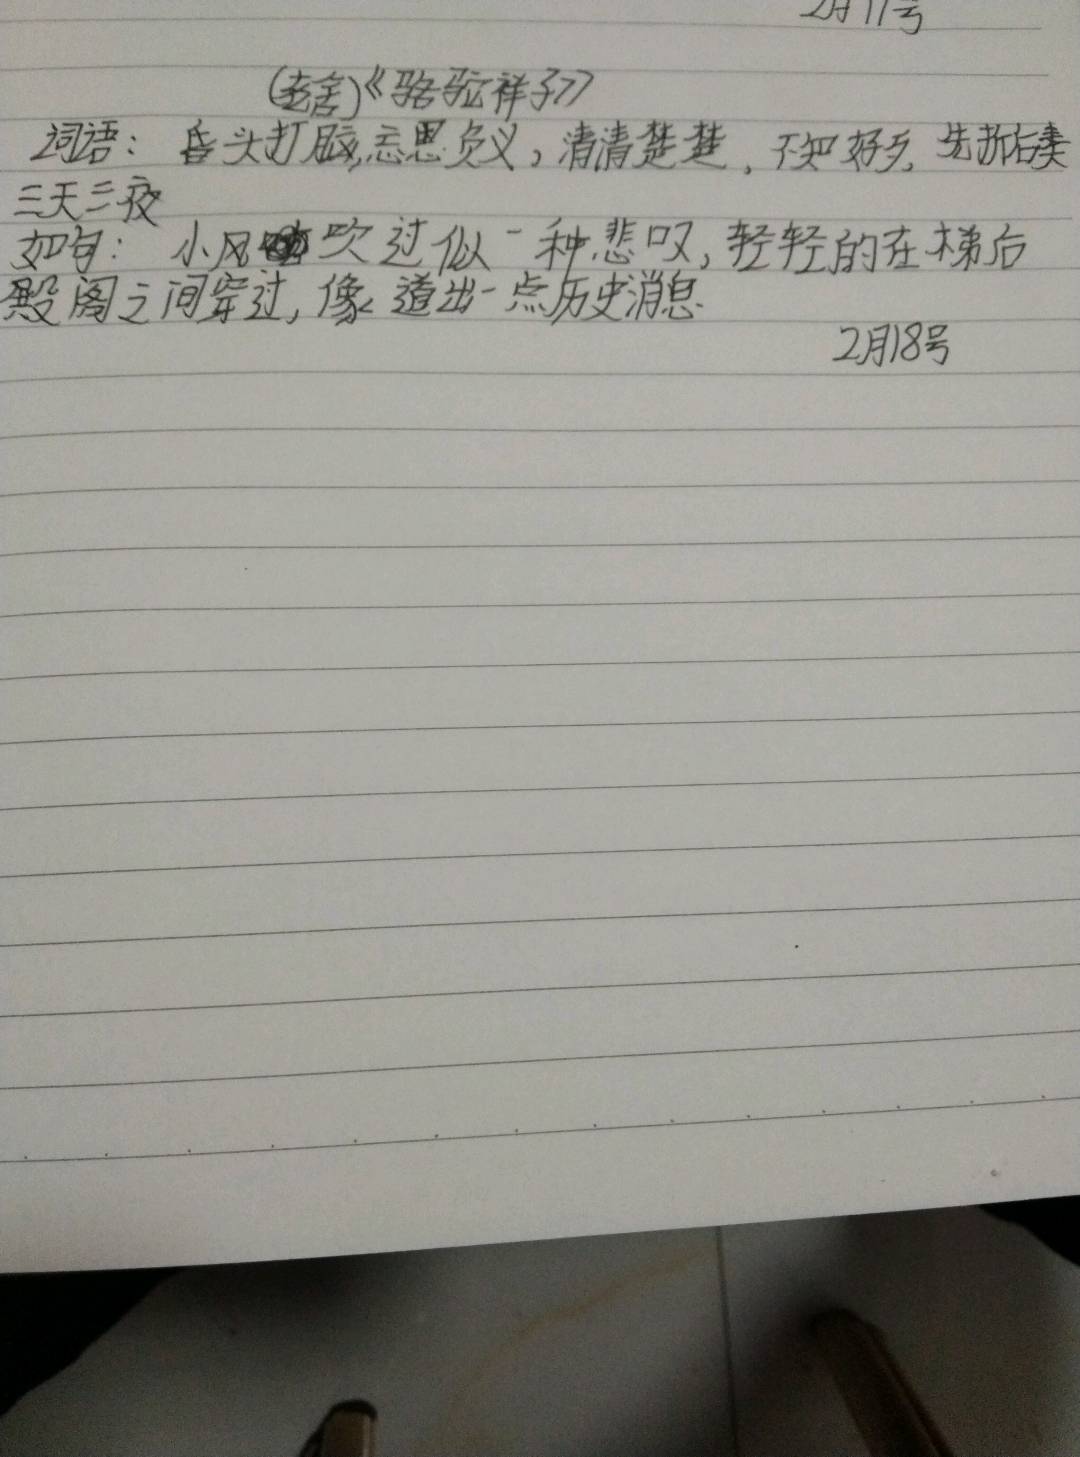 2月17号
(老舍)《骆驼祥子》
词语：昏头打脑,忘恩负义，清清楚楚，不知好歹，先折后卖
三天三夜
好句：小风吹过似一种悲叹，轻轻的在楼台
殿阁之间穿过，像 道出一点历史消息.
2月18号